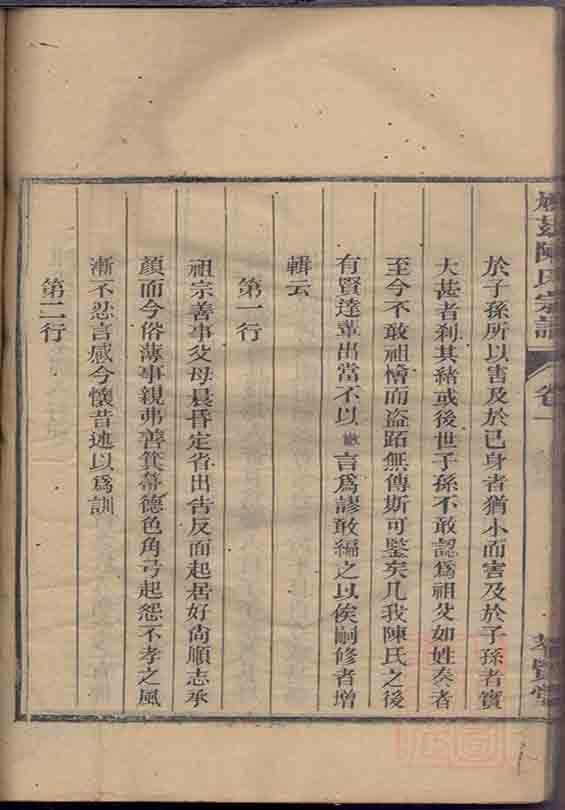 陳氏宗譜 卷一
於子孫所以害及於已身者猶小而害及於子孫者實
大甚者剎其緒或後世子孫不敢認爲祖父如姓秦者
至今不敢祖檜而盜跖無傳斯可鑒矣凡我陳氏之後
有賢達輩出當不以 言爲謬敢編之以俟嗣修者增
輯云
第一行
祖宗善事父母晨昏定省出告反面起居好尙順志承
顏而今俗薄事親弗善箕帚德色角弓起怨不孝之風
漸不忍言感今懷昔述以爲訓
第二行